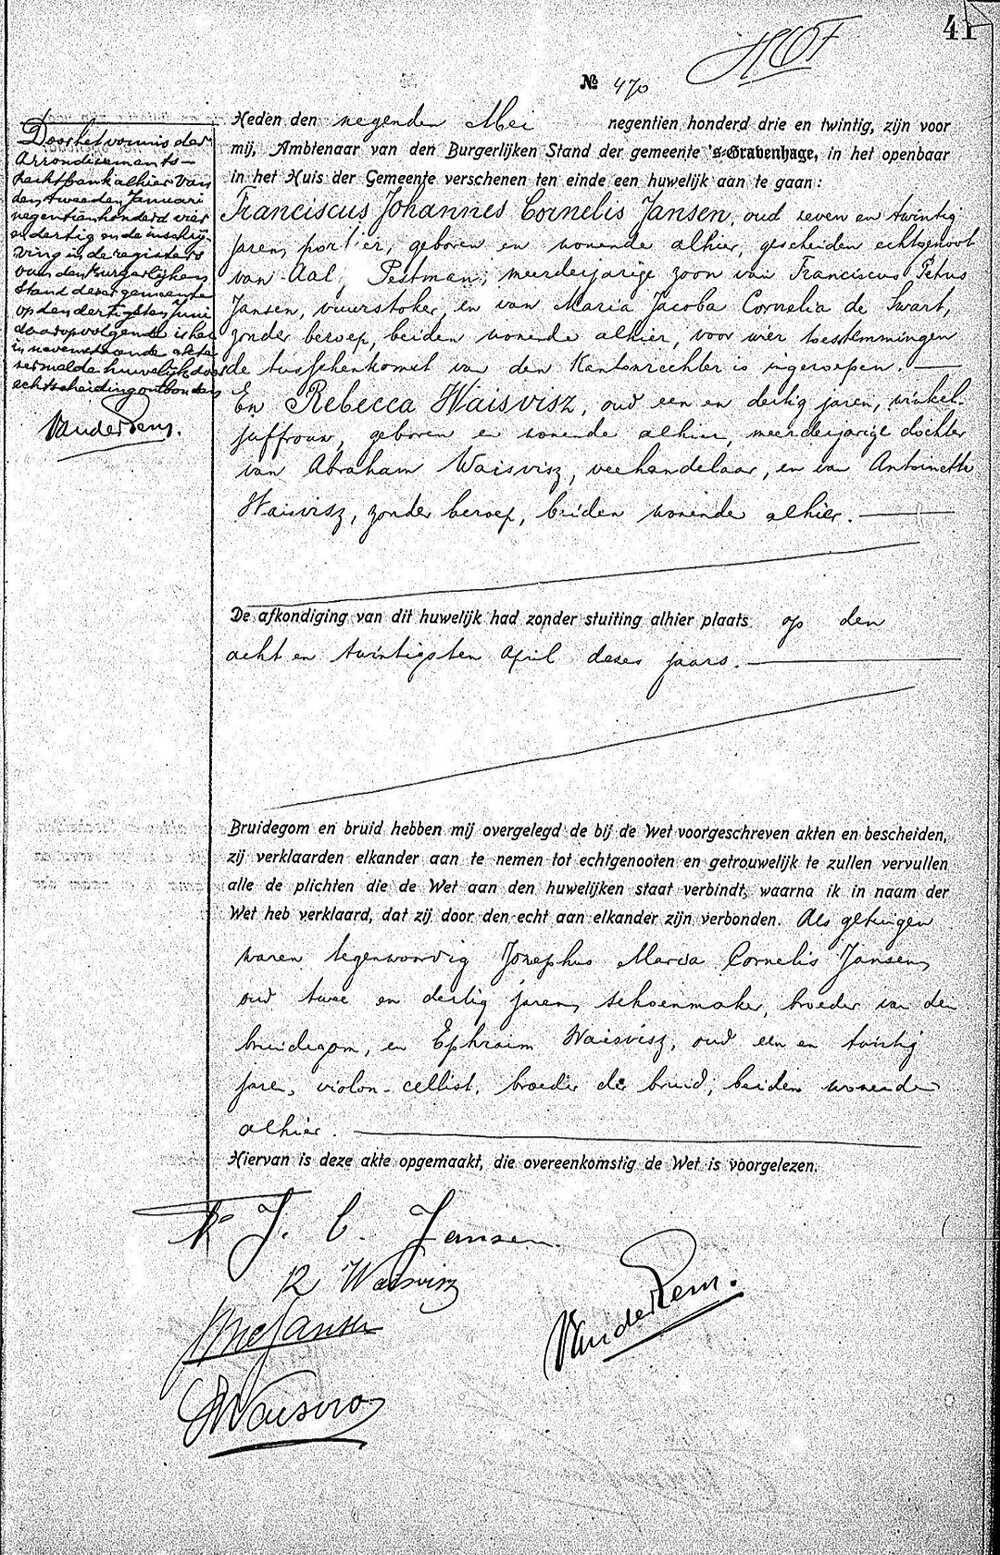 41
№ 470
Heden den negenden Mei negentien honderd drie en twintig, zijn voor
mij, Ambtenaar van den Burgerlijken Stand der gemeente 's-Gravenhage, in het openbaar
in het Huis der Gemeente verschenen ten einde een huwelijk aan te gaan:
Franciscus Johannes Cornelis Jansen, oud zeven en twintig
jaren, portier, geboren en wonende alhier, gescheiden echtgenoot
van Aal, Pestman, meerderjarige zoon van Franciscus Petrus
Jansen, vuurstoker, en van Maria Jacoba Cornelia de Swart,
zonder beroep, beiden wonende alhier, voor wier toestemmingen
de tusschenkomst van den Kantonrechter is ingeroepen.
En Rebecca Waisvisz, oud een en dertig jaren, winkel-
juffrouw, geboren en wonende alhier, meerderjarige dochter
van Abraham Waisvisz, veehandelaar, en van Antoinette
Waisvisz, zonder beroep, beiden wonende alhier.
De afkondiging van dit huwelijk had zonder stuiting alhier plaats op den
acht en twintigsten April dezes jaars.
Bruidegom en bruid hebben mij overgelegd de bij de Wet voorgeschreven akten en bescheiden,
zij verklaarden elkander aan te nemen tot echtgenooten en getrouwelijk te zullen vervullen
alle de plichten die de Wet aan den huwelijken staat verbindt, waarna ik in naam der
Wet heb verklaard, dat zij door den echt aan elkander zijn verbonden. Als getuigen
waren tegenwoordig Josephus Maria Cornelis Jansen,
oud twee en dertig jaren, schoenmaker, broeder van den
bruidegom, en Ephraim Waisvisz, oud een en twintig
jaren, violon-cellist, broeder der bruid, beiden wonende
alhier.
Hiervan is deze akte opgemaakt, die overeenkomstig de Wet is voorgelezen.
Door het vonnis der
Arrondissements-
Rechtbank alhier van
den tweeden Januari
negentienhonderd vier
en dertig en de inschrij-
ving in de registers
van den Burgerlijken
Stand dezer gemeente
op den dertigsten Juni
daaropvolgende is het
in nevenstaande akte
vermelde huwelijk door
echtscheiding ontbonden
VanderRem.
F. J. C. Jansen
R Waisvisz
JMC Jansen
VanderRem.
E Waisvisz